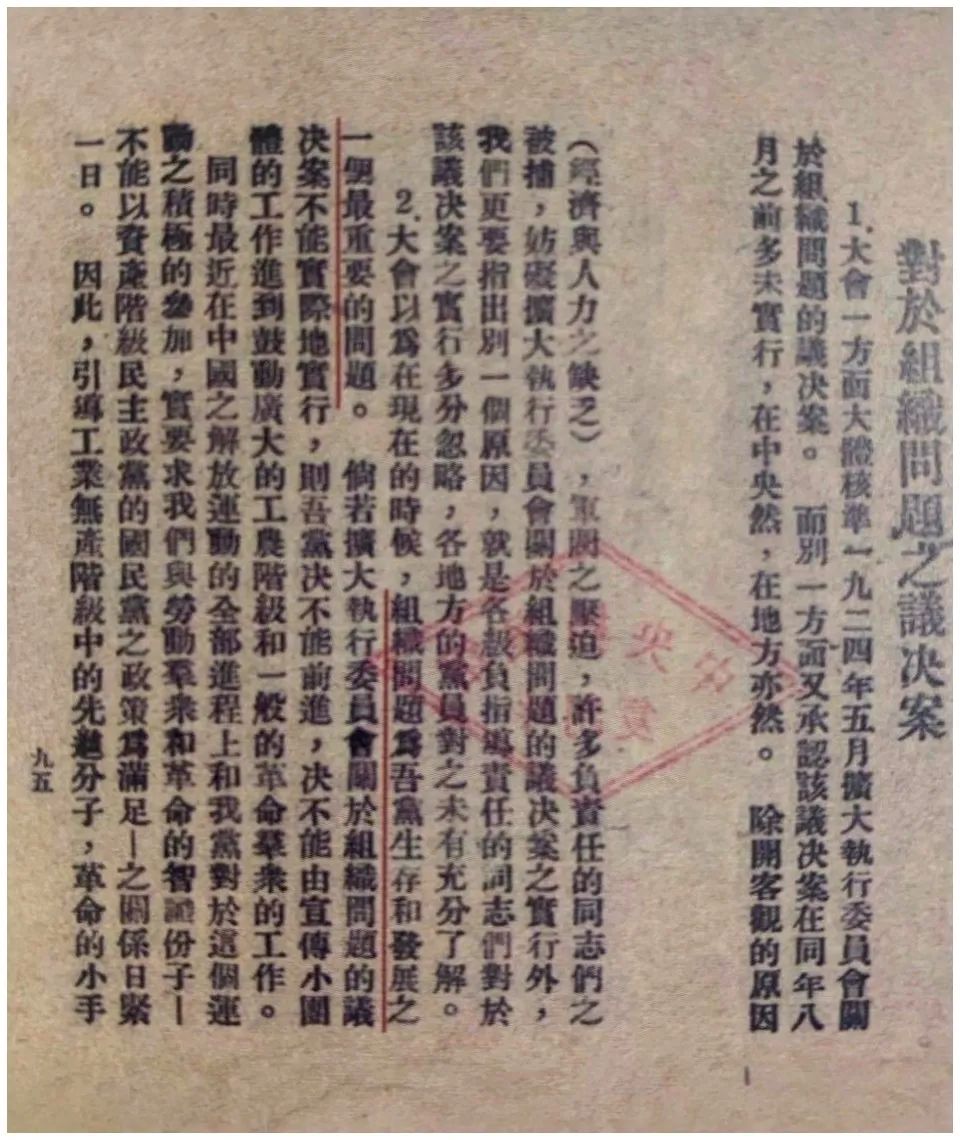 對於組織問題之議决案
1.大會一方面大體核準一九二四年五月擴大執行委員會關
於組織問題的議决案。 而別一方面又承認該議决案在同年八
月之前多未實行，在中央然，在地方亦然。 除開客觀的原因
（經濟與人力之缺乏），軍閥之壓迫，許多負責任的同志們之
被捕，妨礙擴大執行委員會關於組織問題的議决案之實行外，
我們更要指出別一個原因，就是各級負指導責任的同志們對於
該議决案之實行多分忽略，各地方的黨員對之未有充分了解。
2.大會以爲在現在的時候，組織問題爲吾黨生存和發展之
一個最重要的問題。 倘若擴大執行委員會關於組織問題的議
决案不能實際地實行，則吾黨决不能前進，决不能由宣傳小團
體的工作進到鼓動廣大的工農階級和一般的革命羣衆的工作。
同時最近在中國之解放運動的全部進程上和我黨對於這個運
動之積極的參加，實要求我們與勞動羣衆和革命的智識份子—
不能以資產階級民主政黨的國民黨之政策爲滿足—之關係日緊
一日。 因此，引導工業無產階級中的先進分子，革命的小手
九五